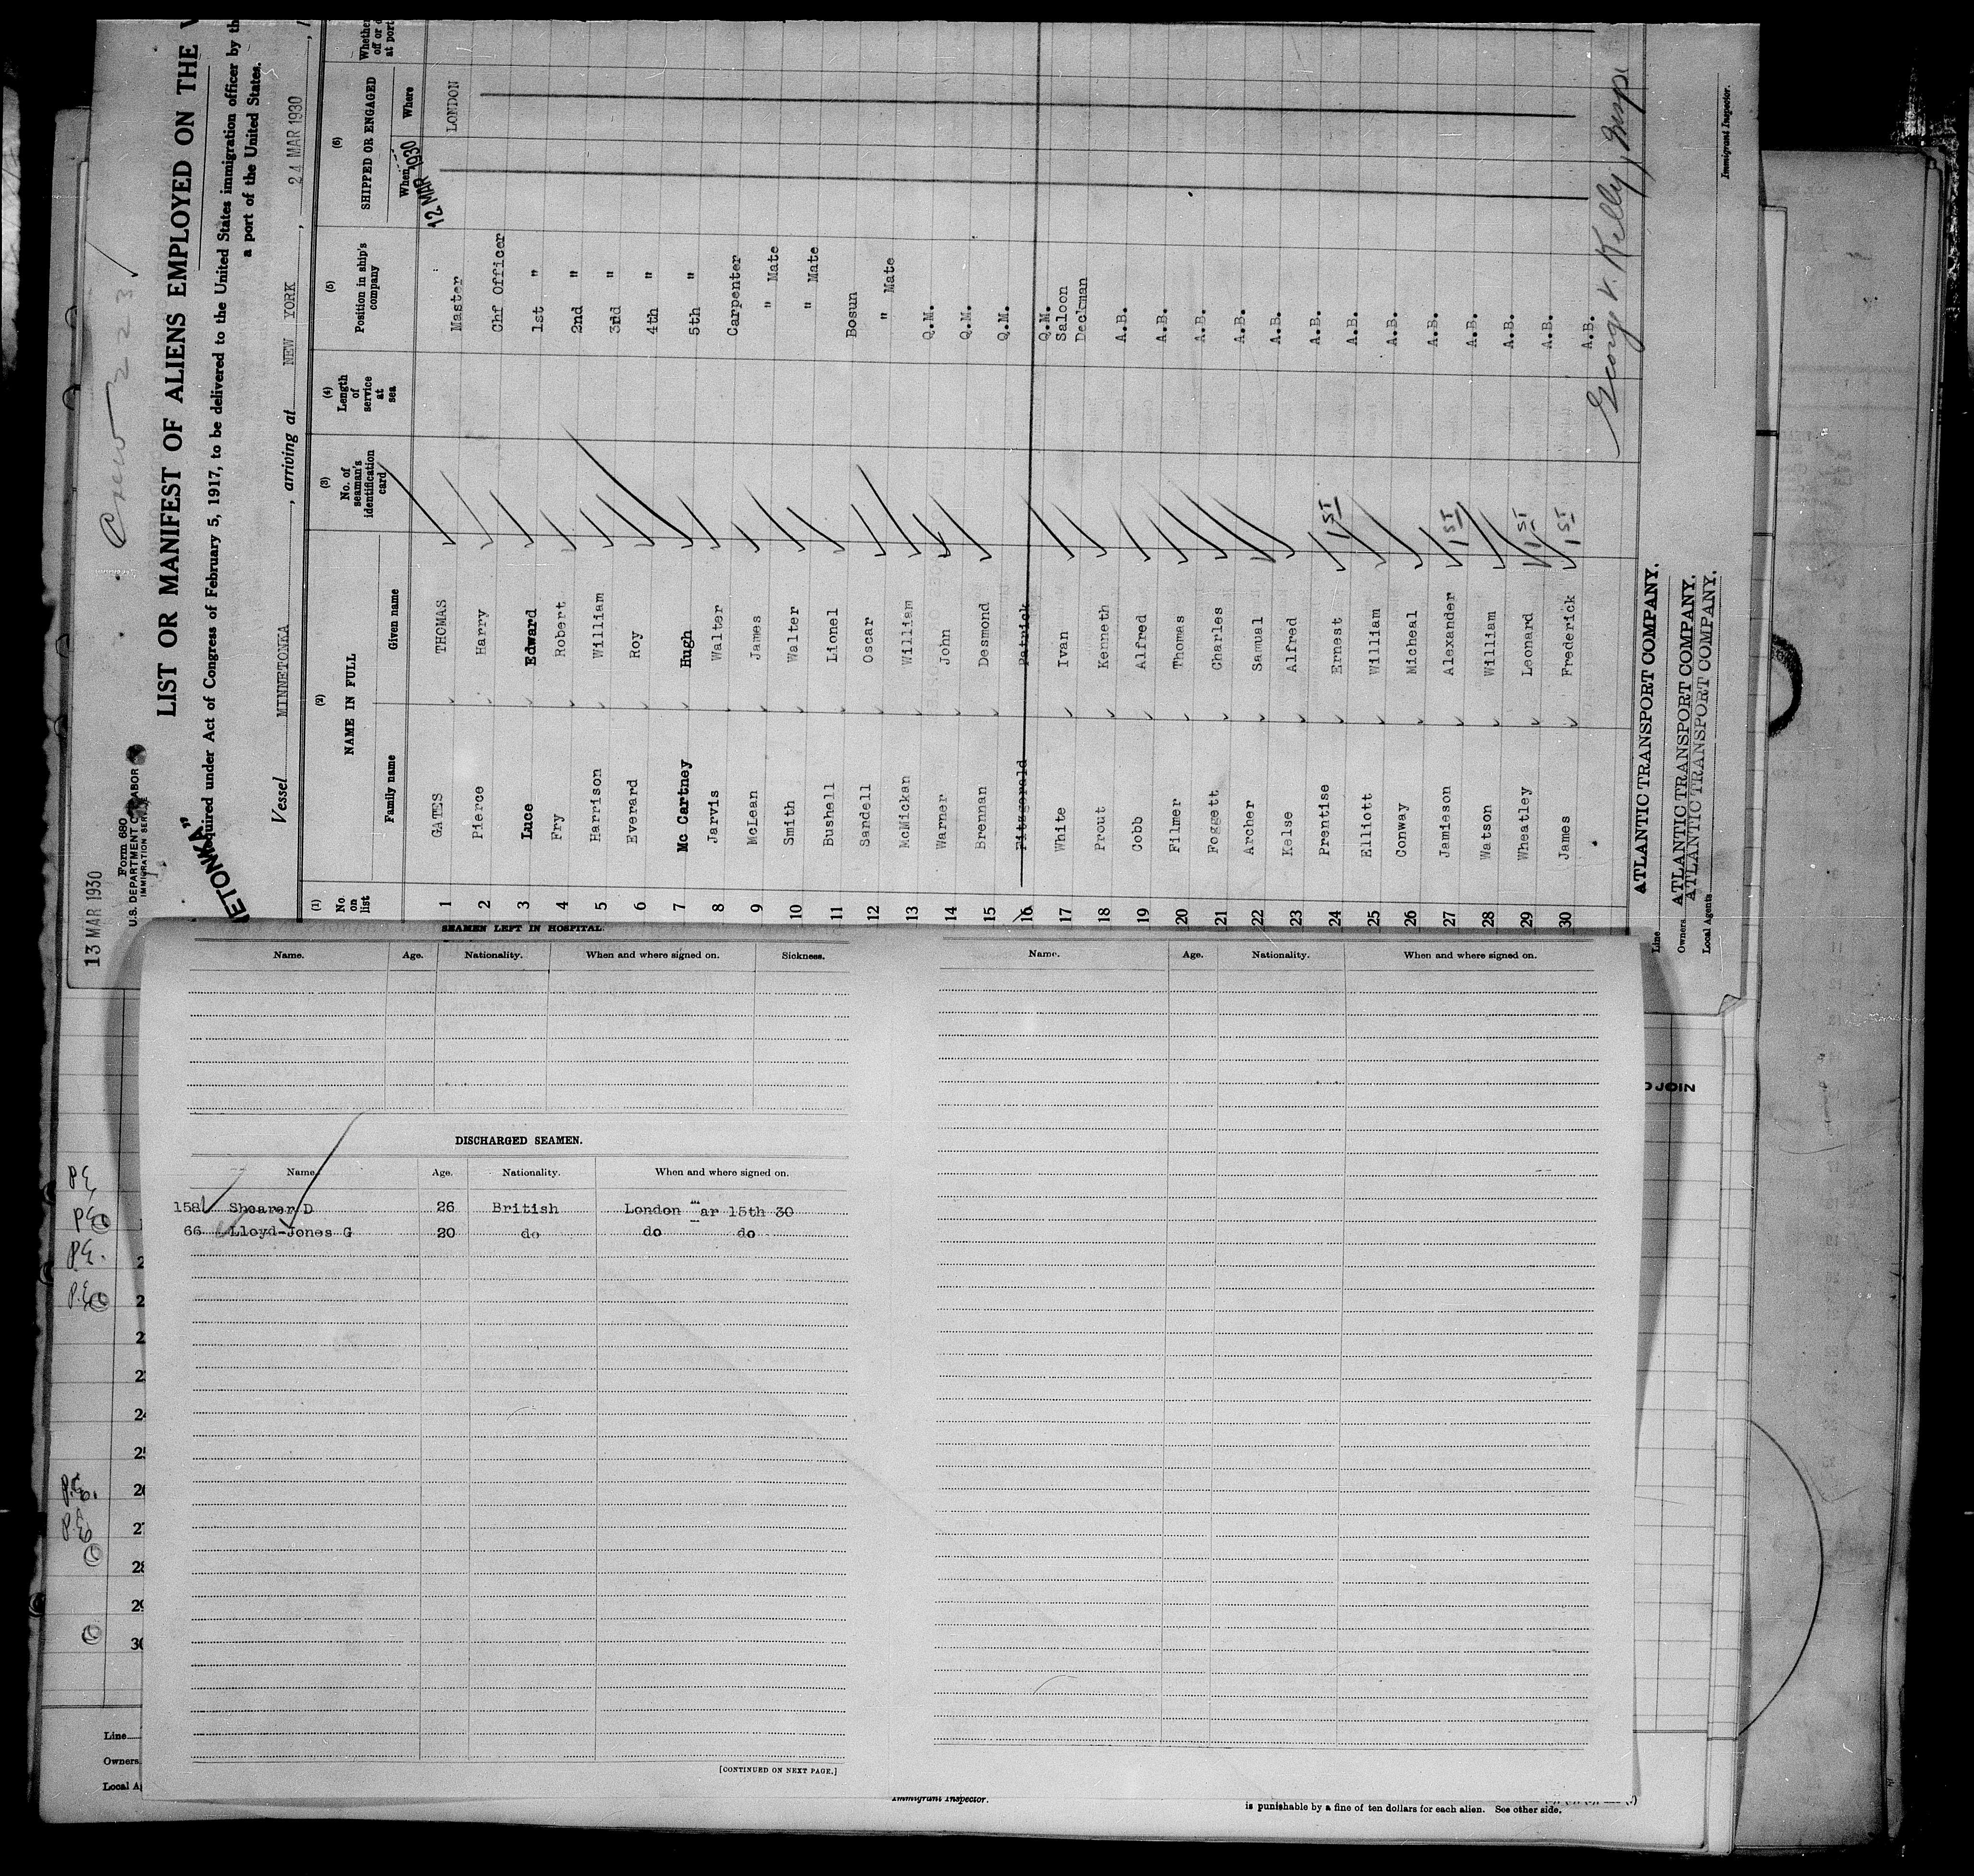 13 MAR 1930
Form 680
U.S. DEPARTMENT OF LABOR
IMMIGRATION SERVICE
Crew 223
LIST OR MANIFEST OF ALIENS EMPLOYED ON THE
Required under Act of Congress of February 5, 1917, to be delivered to the United States immigration officer by th
a port of the United States.
ETONKA"
Vessel MINNETONKA, arriving at NEW YORK, 24 MAR 1930,
(1) (2) (3) (4) (5) (6)
No. on list
NAME IN FULL
Family name Given name
No. of seaman's identification card
Length of service at sea
Position in ship's company
SHIPPED OR ENGAGED
When Where
Whether
off or
at port
12 MAR 1930
1 GATES THOMAS Master LONDON
2 Pierce Harry Chf Officer
3 Luce Edward 1st "
4 Fry Robert 2nd "
5 Harrison William 3rd "
6 Everard Roy 4th "
7 Mc Cartney Hugh 5th "
8 Jarvis Walter Carpenter
9 McLean James " Mate
10 Smith Walter " Mate
11 Bushell Lionel Bosun
12 Sandell Oscar " Mate
13 McMickan William Q.M.
14 Warner John Q.M.
15 Brennan Desmond Q.M.
16 Fitzgerald Patrick Q.M.
17 White Ivan Saloon Deckman
18 Prout Kenneth A.B.
19 Cobb Alfred A.B.
20 Filmer Thomas A.B.
21 Foggett Charles A.B.
22 Archer Samual A.B.
23 Kelse Alfred A.B.
24 Prentise Ernest 1ST A.B.
25 Elliott William A.B.
26 Conway Micheal A.B.
27 Jamieson Alexander 1ST A.B.
28 Watson William A.B.
29 Wheatley Leonard 1ST A.B.
30 James Frederick 1ST A.B.
George V. Kelly, Insp
Immigrant Inspector.
ATLANTIC TRANSPORT COMPANY.
Line
Owners ATLANTIC TRANSPORT COMPANY.
Local Agents ATLANTIC TRANSPORT COMPANY.
SEAMEN LEFT IN HOSPITAL.
Name. Age. Nationality. When and where signed on. Sickness.
DISCHARGED SEAMEN.
Name. Age. Nationality. When and where signed on.
158 Shearer D 26 British London Mar 15th 30
66 Lloyd-Jones G 20 do do do
[CONTINUED ON NEXT PAGE.]
Name. Age. Nationality. When and where signed on.
D JOIN
P.E.
P.E.
P.E.
P.E.
P.E.
P.E.
2
2
22
23
24
25
26
27
28
29
30
Line
Owners
Local A
Immigrant Inspector.
is punishable by a fine of ten dollars for each alien. See other side.